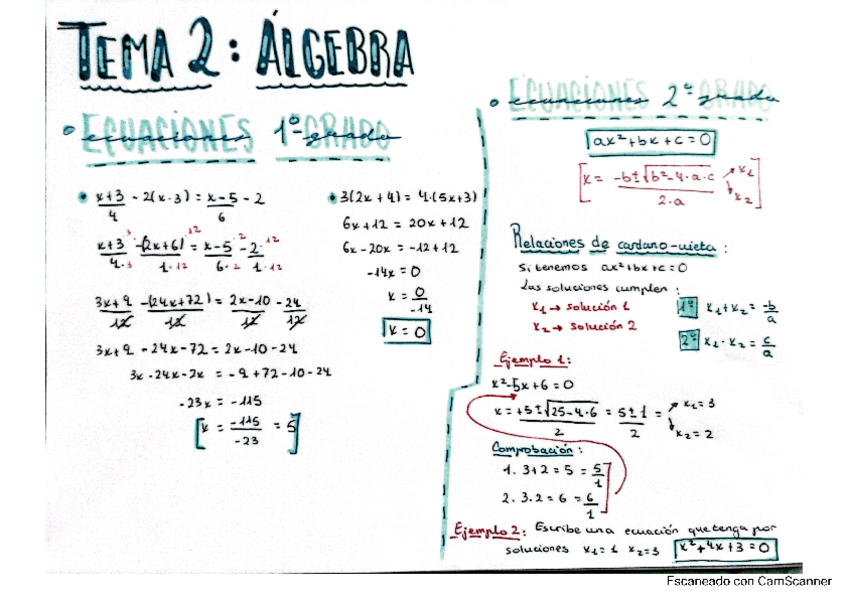 TEMA 2: ÁLGEBRA
ECUACIONES 1º GRADO
ecuaciones grado
x+3/4 - 2(x·3) = x-5/6 - 2
x+3/4·3 ³ -(2x+6)/1·12 ¹² = x-5/6·2 ² - 2/1·12 ¹²
3x+9/12 - (24x+72)/12 = 2x-10/12 - 24/12
3x+9 - 24x-72 = 2x-10-24
3x-24x-2x = -9+72-10-24
-23x = -115
x = -115/-23 = 5
3(2x+4) = 4·(5x+3)
6x+12 = 20x+12
6x-20x = -12+12
-14x = 0
x = 0/-14
x = 0
ECUACIONES 2º GRADO
ecuaciones grado
ax²+bx+c=0
x = -b±√b²-4·a·c/2·a x₁ x₂
Relaciones de cardano-vieta:
Si tenemos ax²+bx+c=0
Las soluciones cumplen:
x₁ → solución 1
x₂ → solución 2
1º x₁+x₂ = -b/a
2º x₁·x₂ = c/a
Ejemplo 1:
x²-5x+6=0
x = +5±√25-4·6/2 = 5±1/2 = x₁=3 x₂=2
Comprobación:
1. 3+2=5=5/1
2. 3·2=6=6/1
Ejemplo 2: Escribe una ecuación que tenga por
soluciones x₁=1 x₂=3 x²+4x+3=0
Escaneado con CamScanner